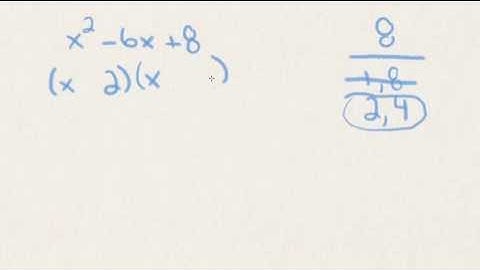 x² - 6x + 8
(x 2)(x )
8
1, 8
2, 4